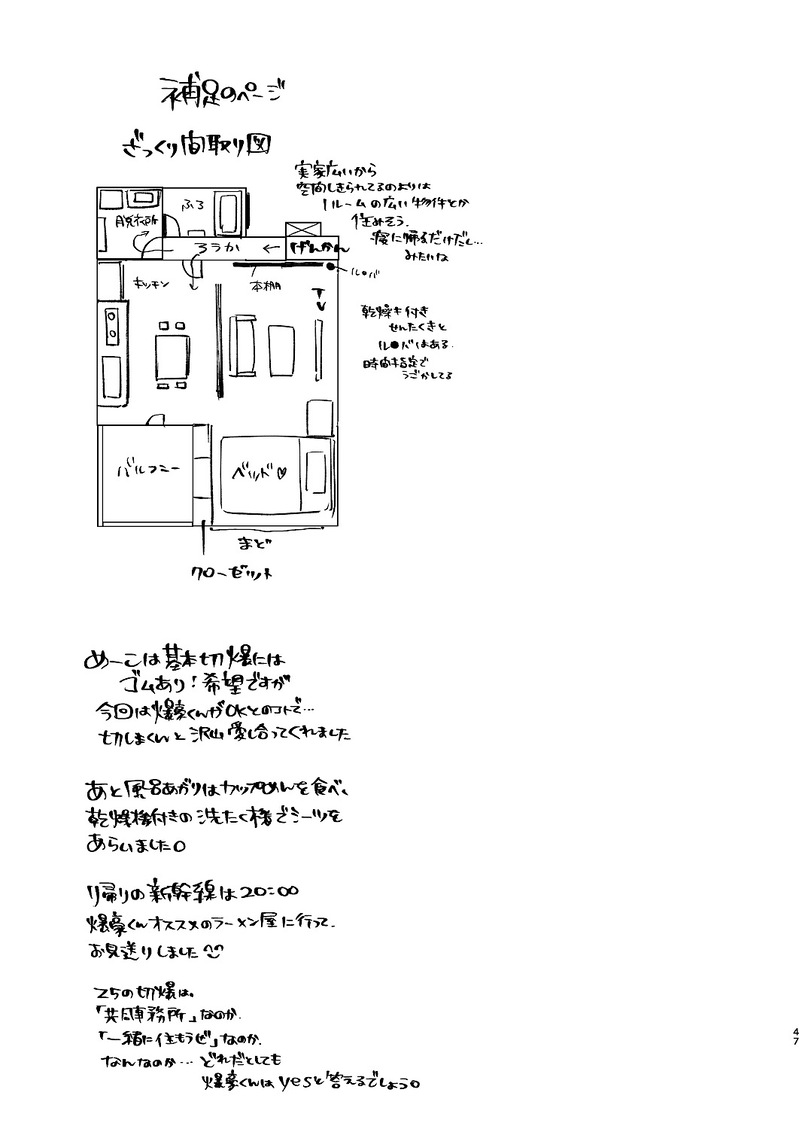 補足のページ
ざっくり間取り図
実家広いから
空間しきられてるのよりは
1ルームの広い物件とか
住みそう.
寝に帰るだけだし…
みたいな
脱衣所
ふろ
ろうか ←
げんかん
キッチン
本棚
ル●バ
乾燥キ付き
せんたくきと
ル●バはある.
時間指定で
うごかしてる
バルコニー
ベッド♡
まど
クローゼット
めーこは基本切爆には
ゴムあり!希望ですが
今回は爆豪くんがOKとのコトで…
切しまくんと沢山愛し合ってくれました
あと風呂あがりはカップめんを食べ、
乾燥機付きの洗たく機でシーツを
あらいました。
り帰りの新幹線は20:00
爆豪くんオススメのラーメン屋に行って、
お見送りしました
25の切爆は。
「共同事務所」なのか.
「一緒に住もうぜ」なのか.
なんなのか…どれだとしても
爆豪くんはyesと答えるでしょう。
47